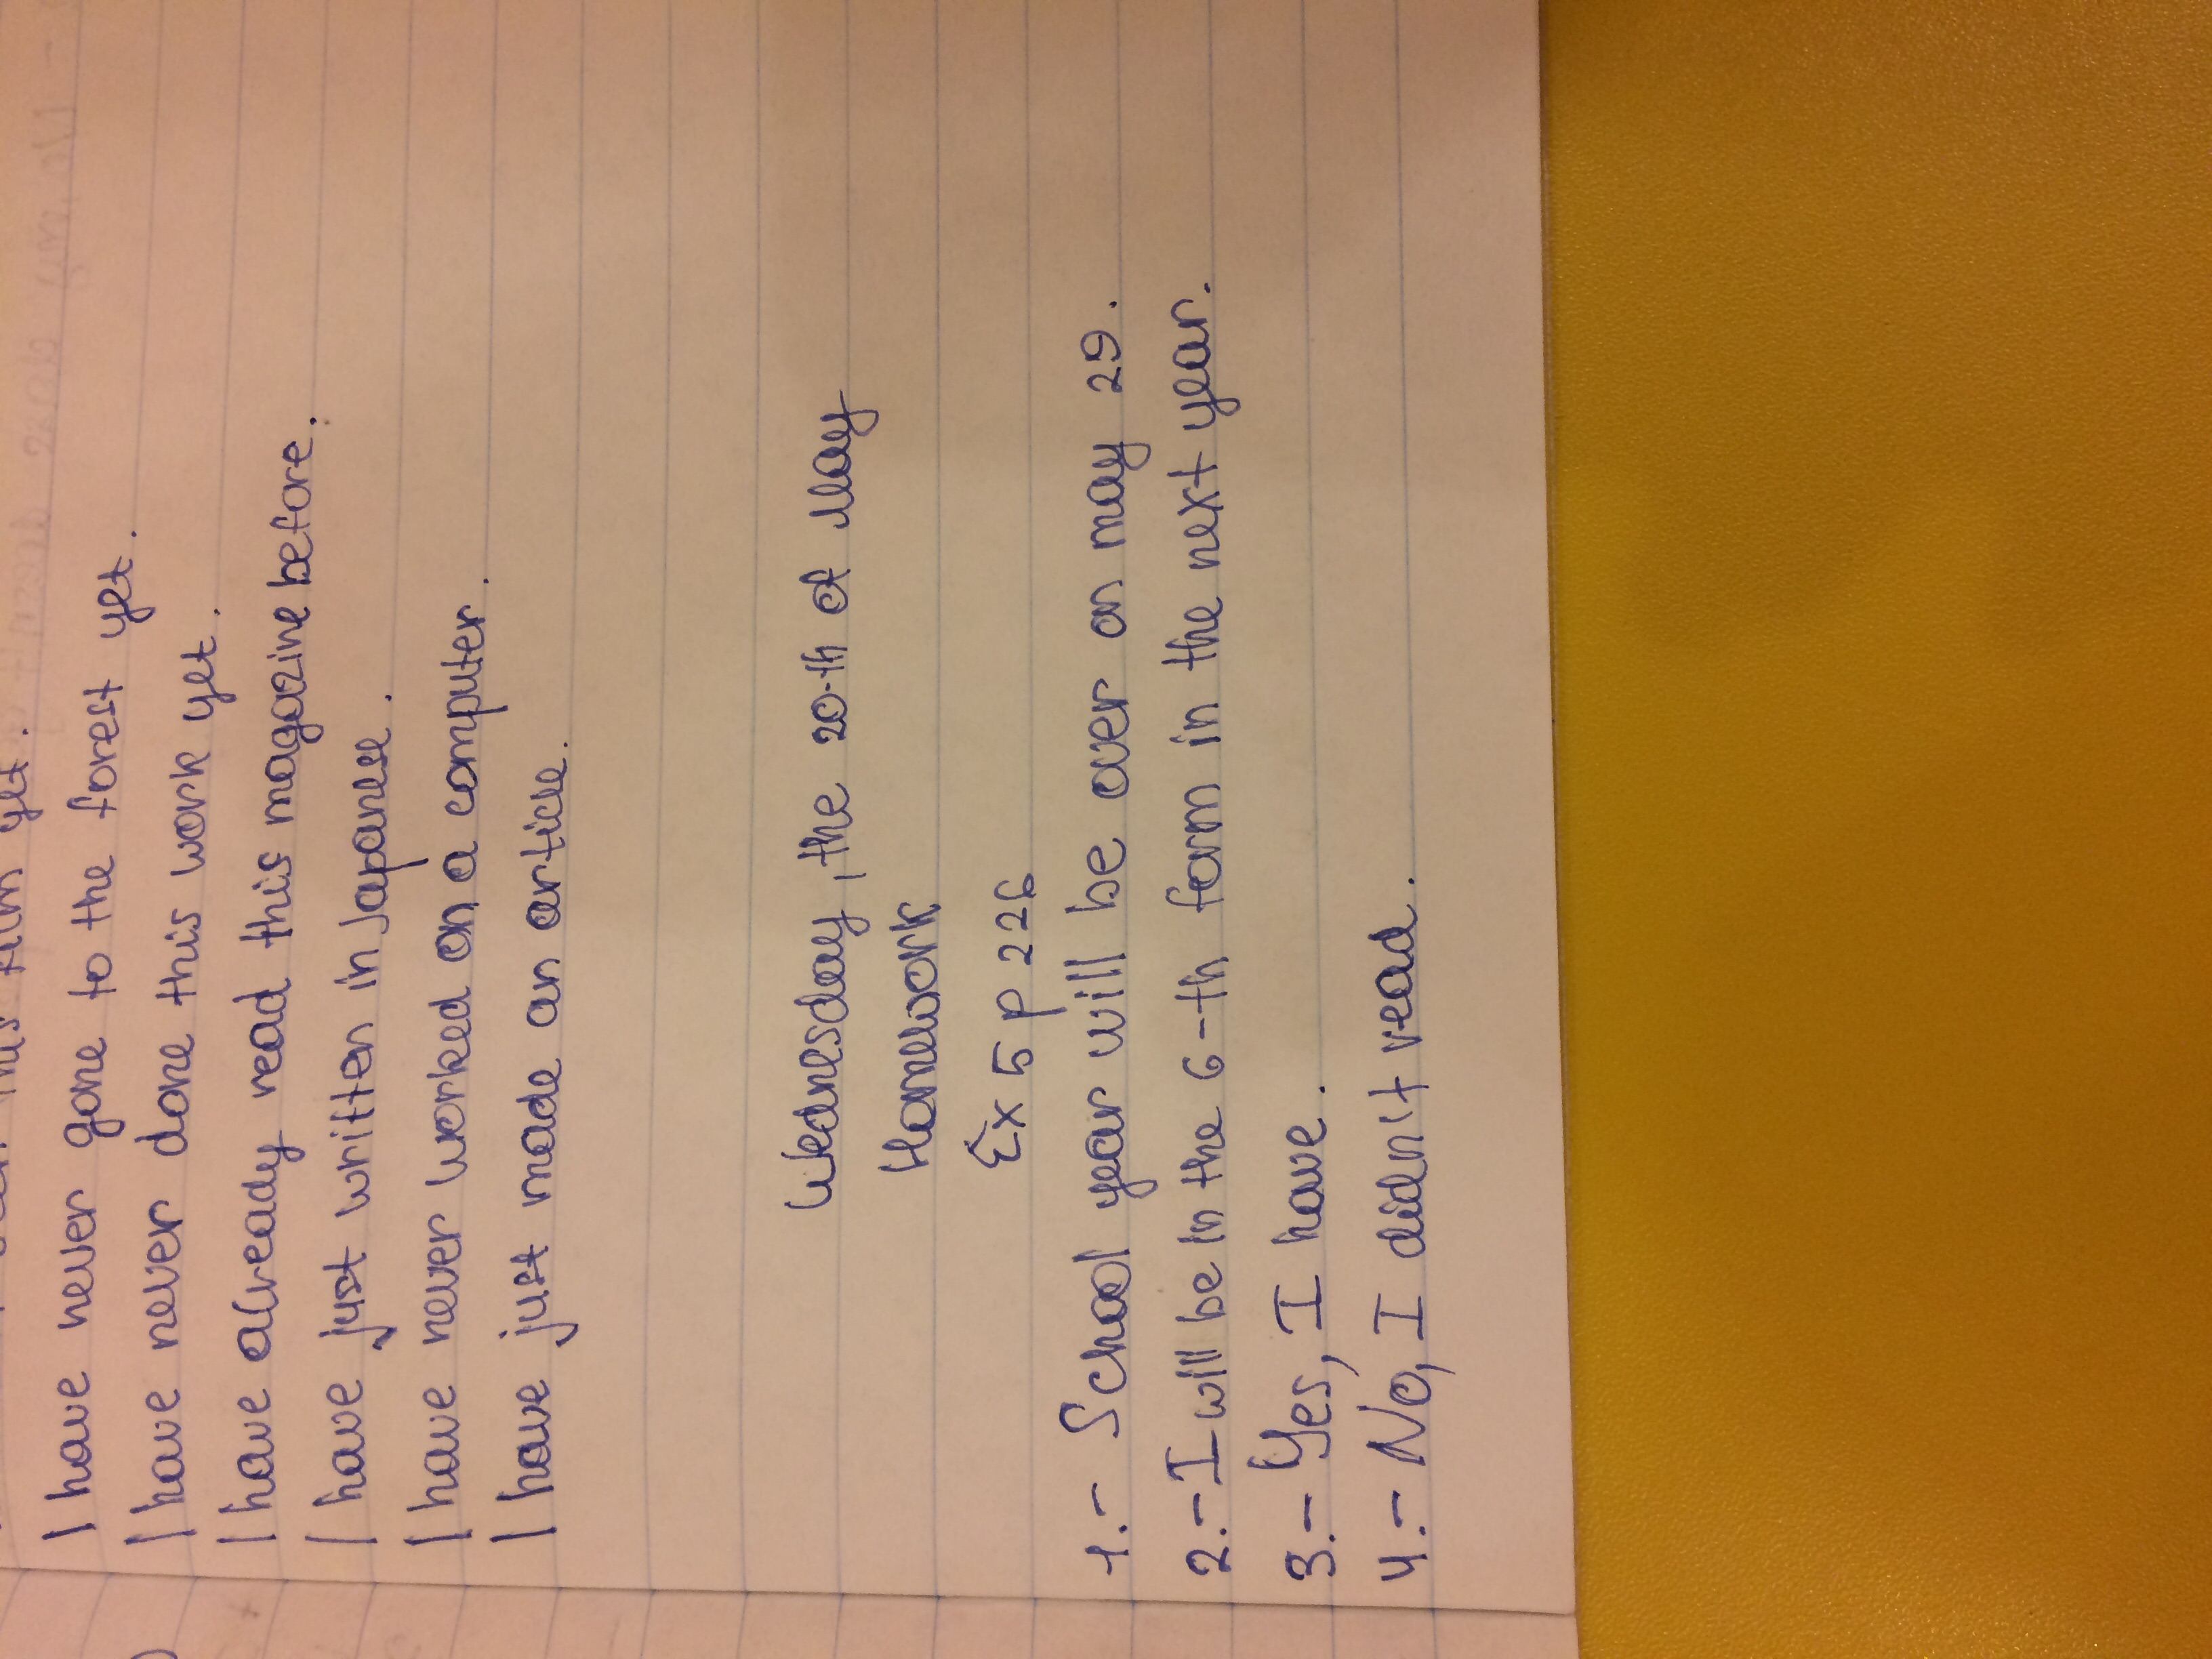 this film yet.
I have never gone to the forest yet.
I have never done this work yet.
I have already read this magazine before.
I have just written in Japanese.
I have never worked on a computer.
I have just made an article.
Wednesday, the 20-th of May
Homework
Ex 5 p 226
1.- School year will be over on may 29.
2.- I will be in the 6-th form in the next year.
3.- Yes, I have.
4.- No, I didn't read.